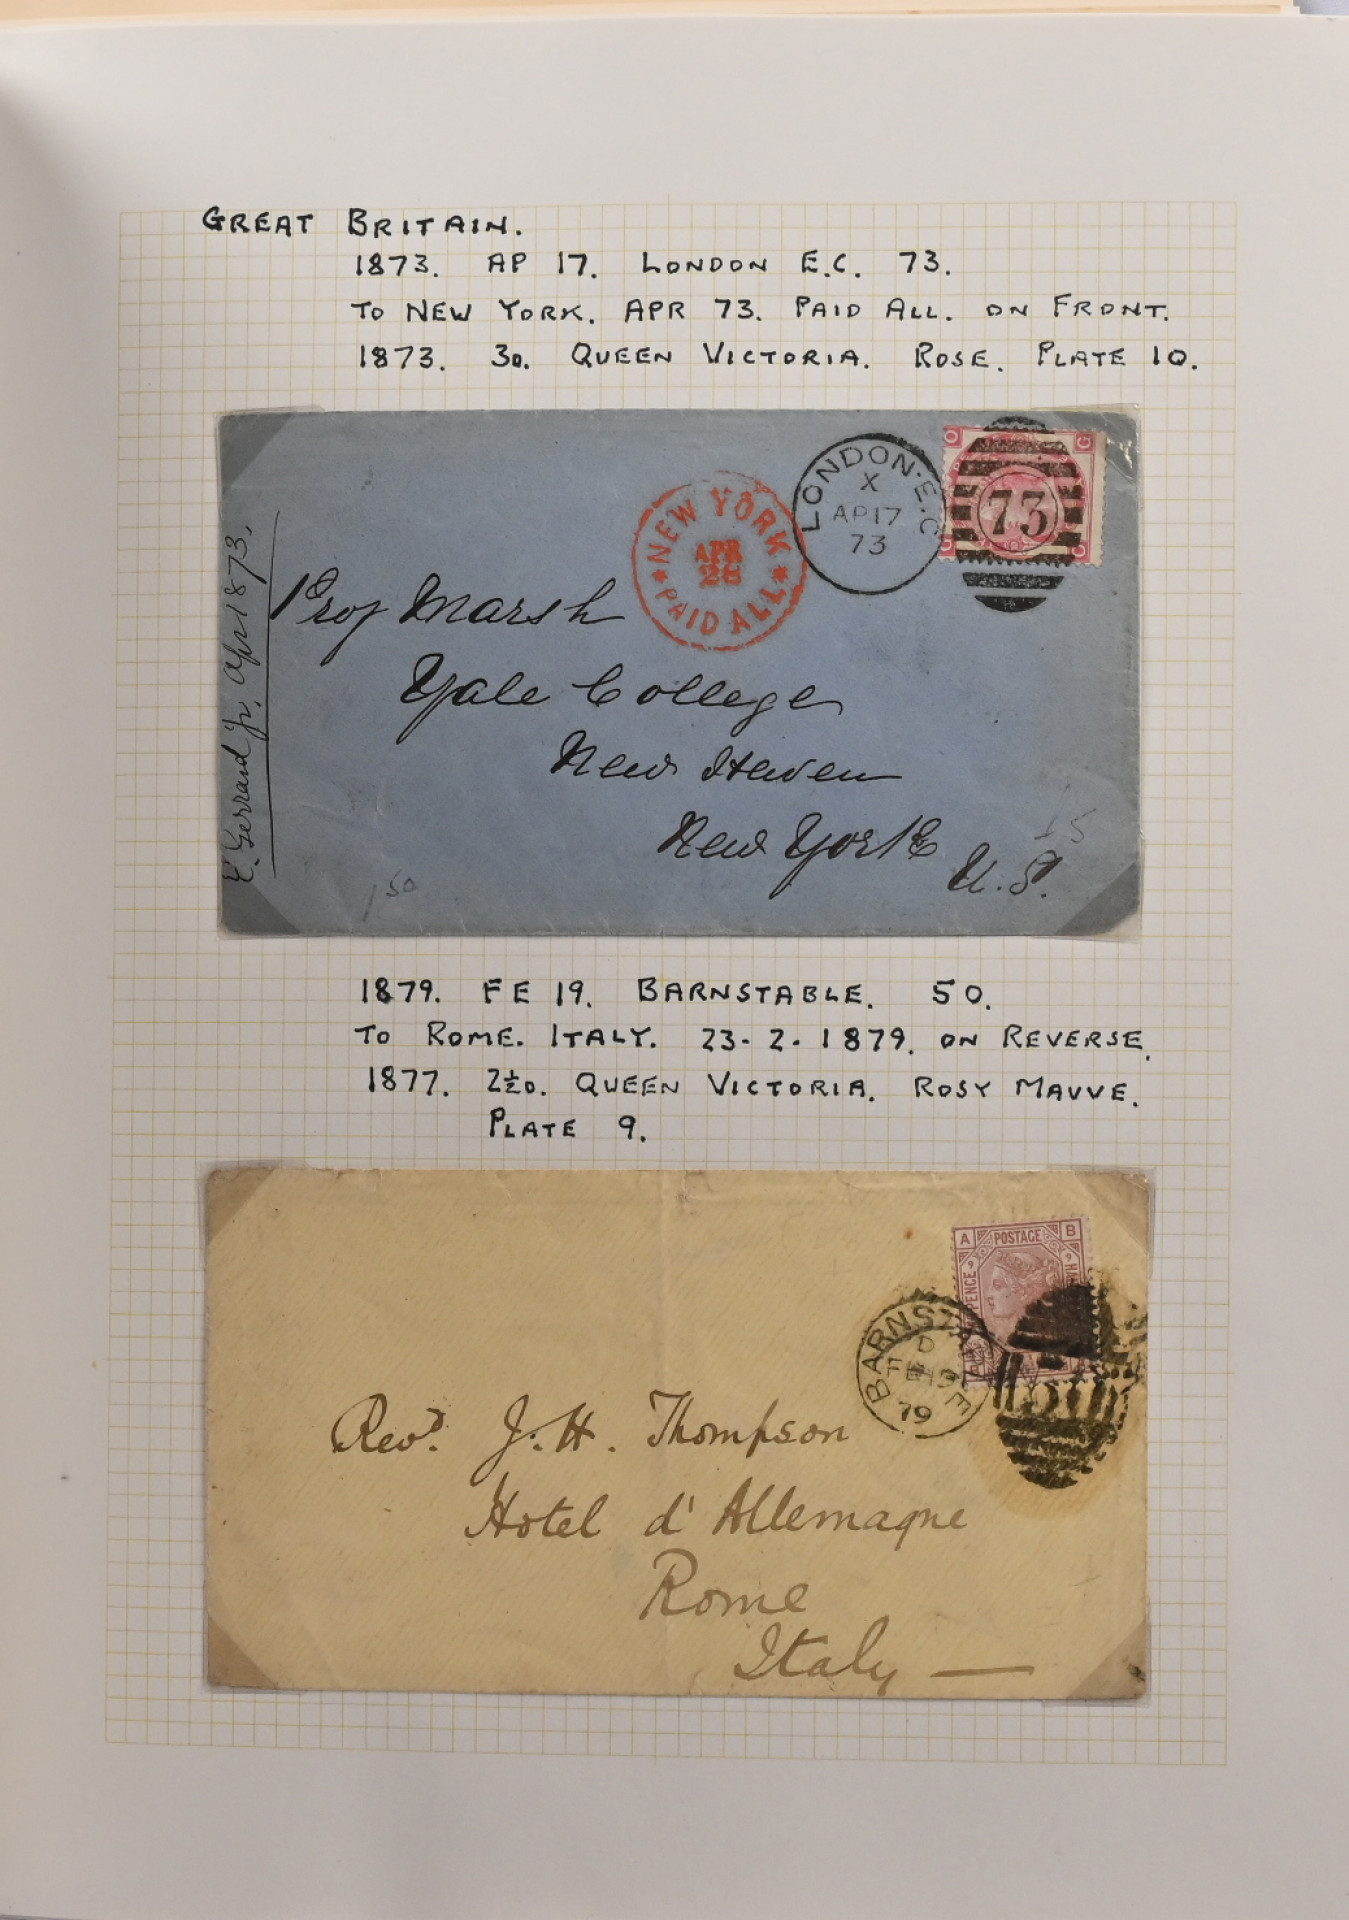 GREAT BRITAIN.
1873. AP 17. LONDON E.C. 73.
TO NEW YORK. APR 73. PAID ALL. ON FRONT.
1873. 3D. QUEEN VICTORIA. ROSE. PLATE 10.
E. Gerrard Jr. Apr 1873.
NEW YORK
APR
PAID ALL
LONDON · E.C
X
AP 17
73
O G
73
G O
Prof Marsh
Yale College
New Haven
New York
U.S.
15
150
1879. FE 19. BARNSTABLE. 50.
TO ROME. ITALY. 23-2-1879. ON REVERSE.
1877. 2½D. QUEEN VICTORIA. ROSY MAUVE.
PLATE 9.
A POSTAGE B
9 9
PENCE HA
BARNSTA LE
D
79
Revd. J. H. Thompson
Hotel d'Allemagne
Rome
Italy —